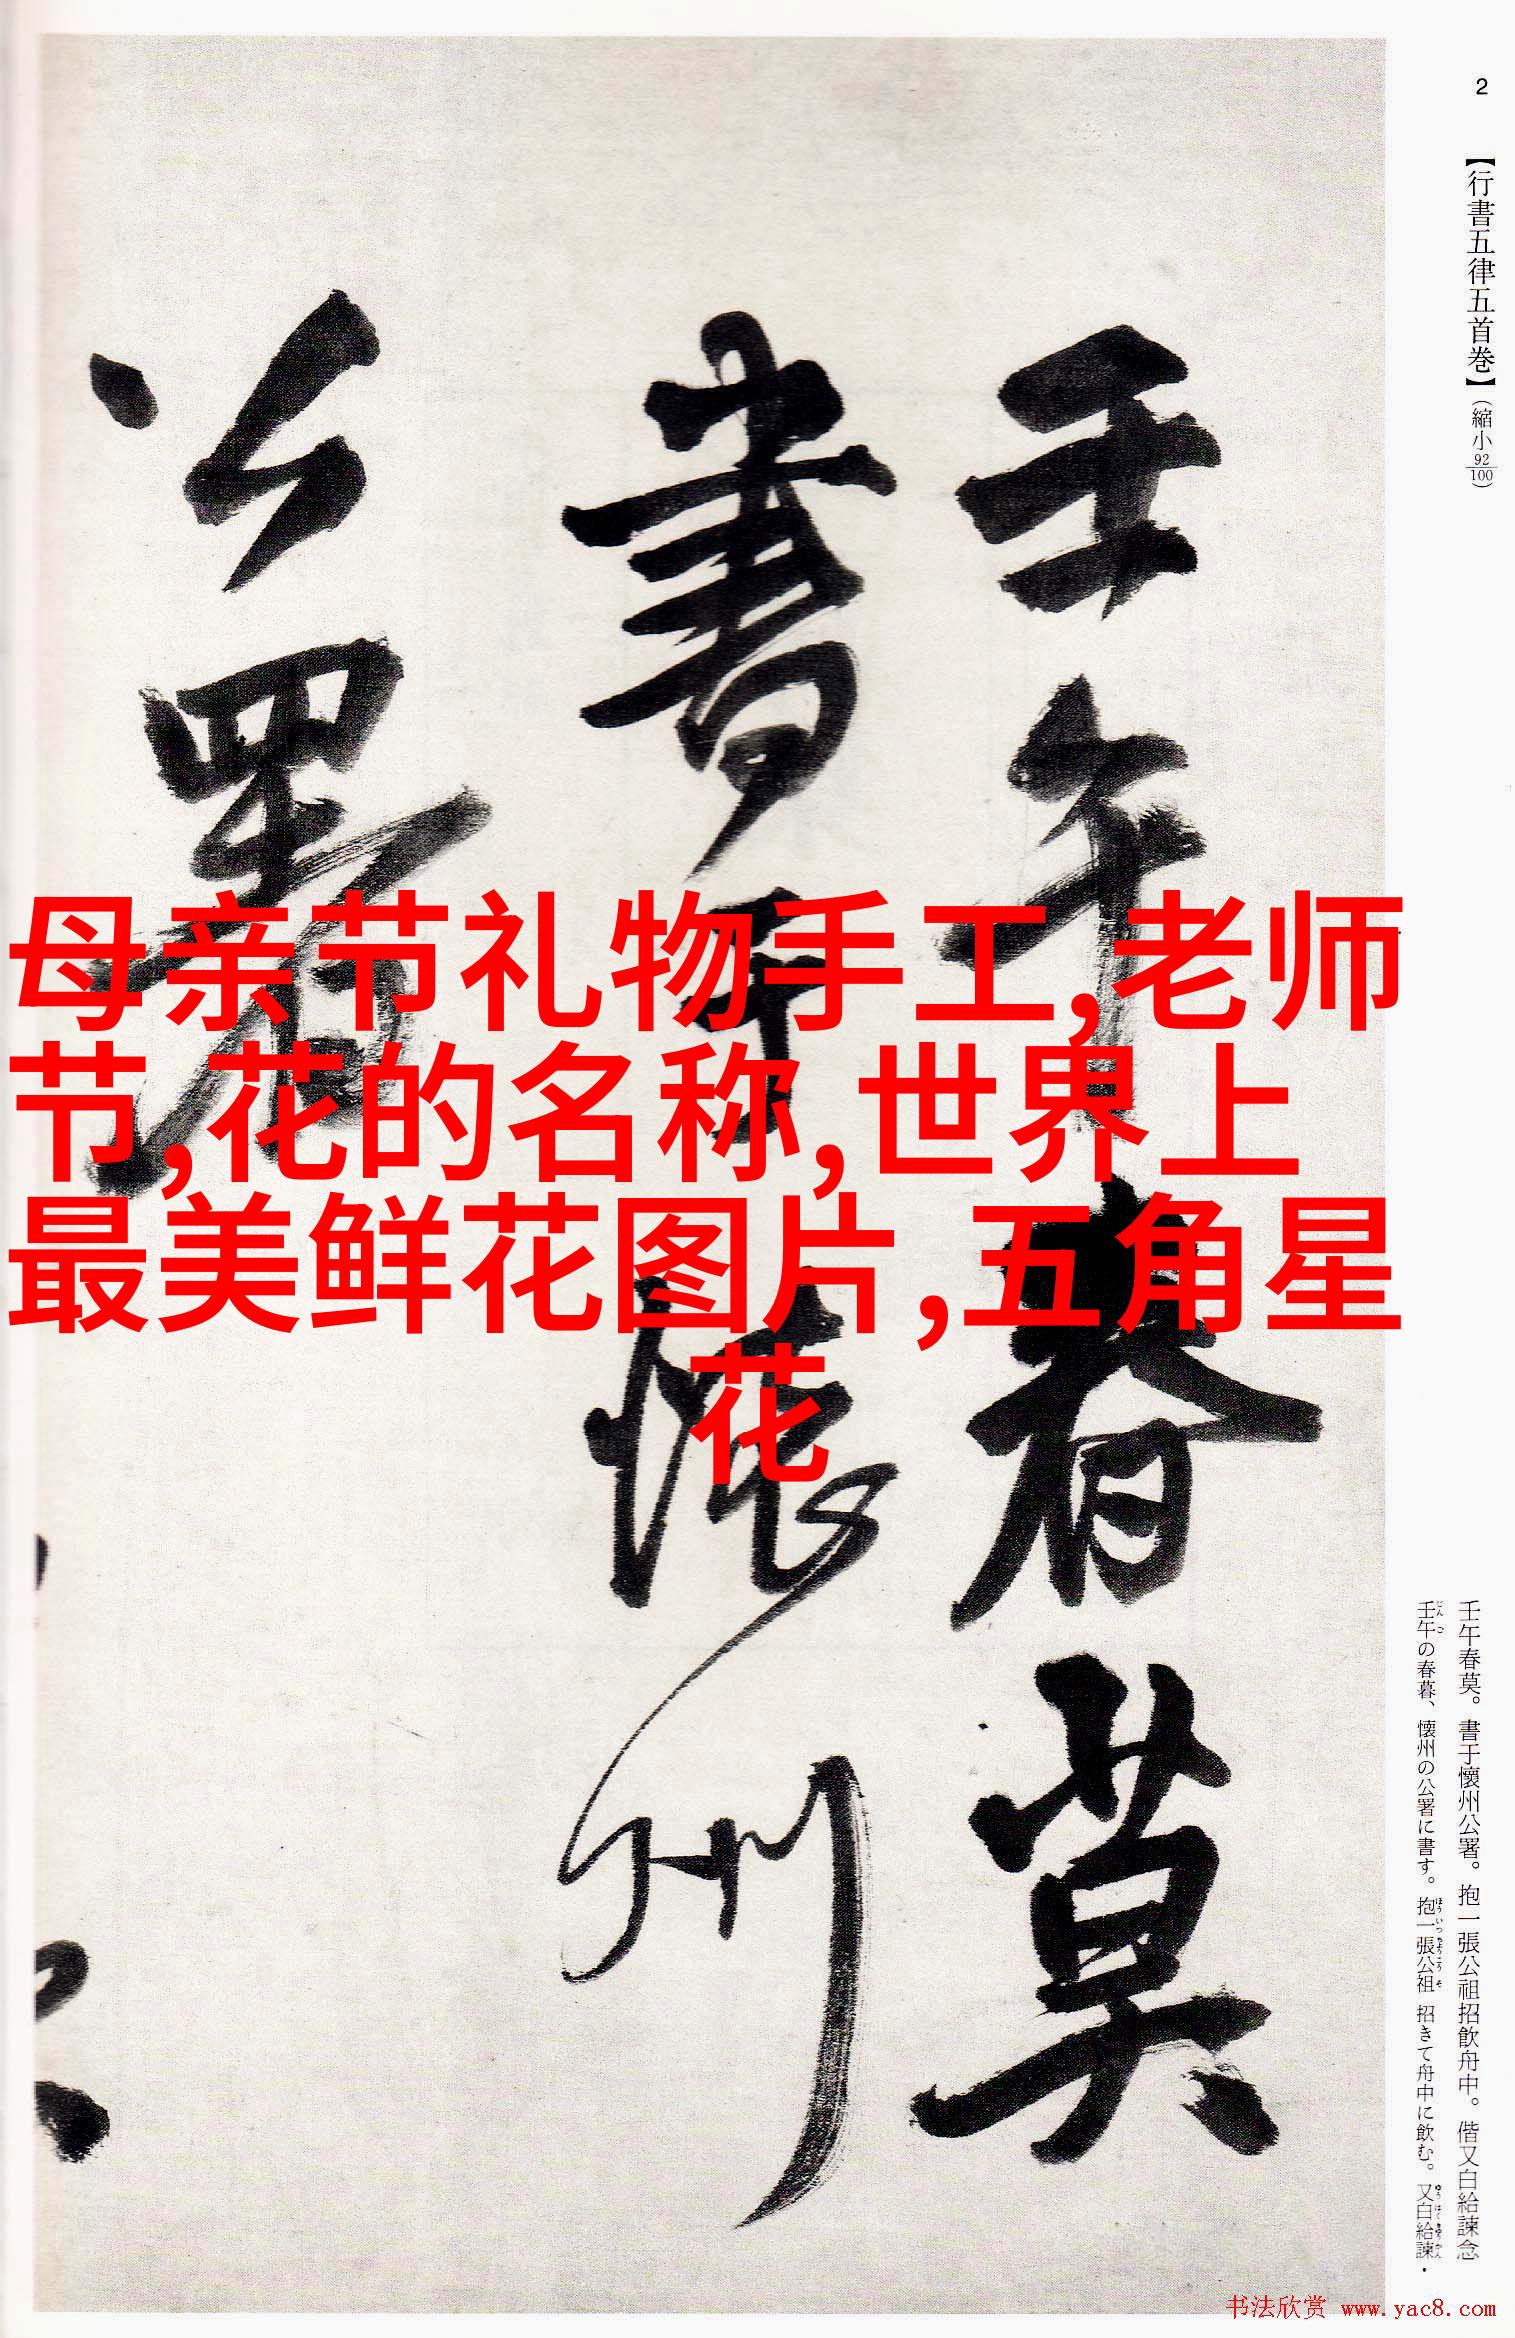 2
【行書五律五首巻】(縮小92/100)
壬午春莫
書于懷州
公署
母亲节礼物手工,老师
节,花的名称,世界上
最美鲜花图片,五角星
花
壬午春莫。書于懷州公署。抱一張公祖招飲舟中。偕又白給諫念
壬午の春暮、懐州の公署に書す。抱一張公祖 招きて舟中に飲む。又白給諫・
书法欣赏 www.yac8.com